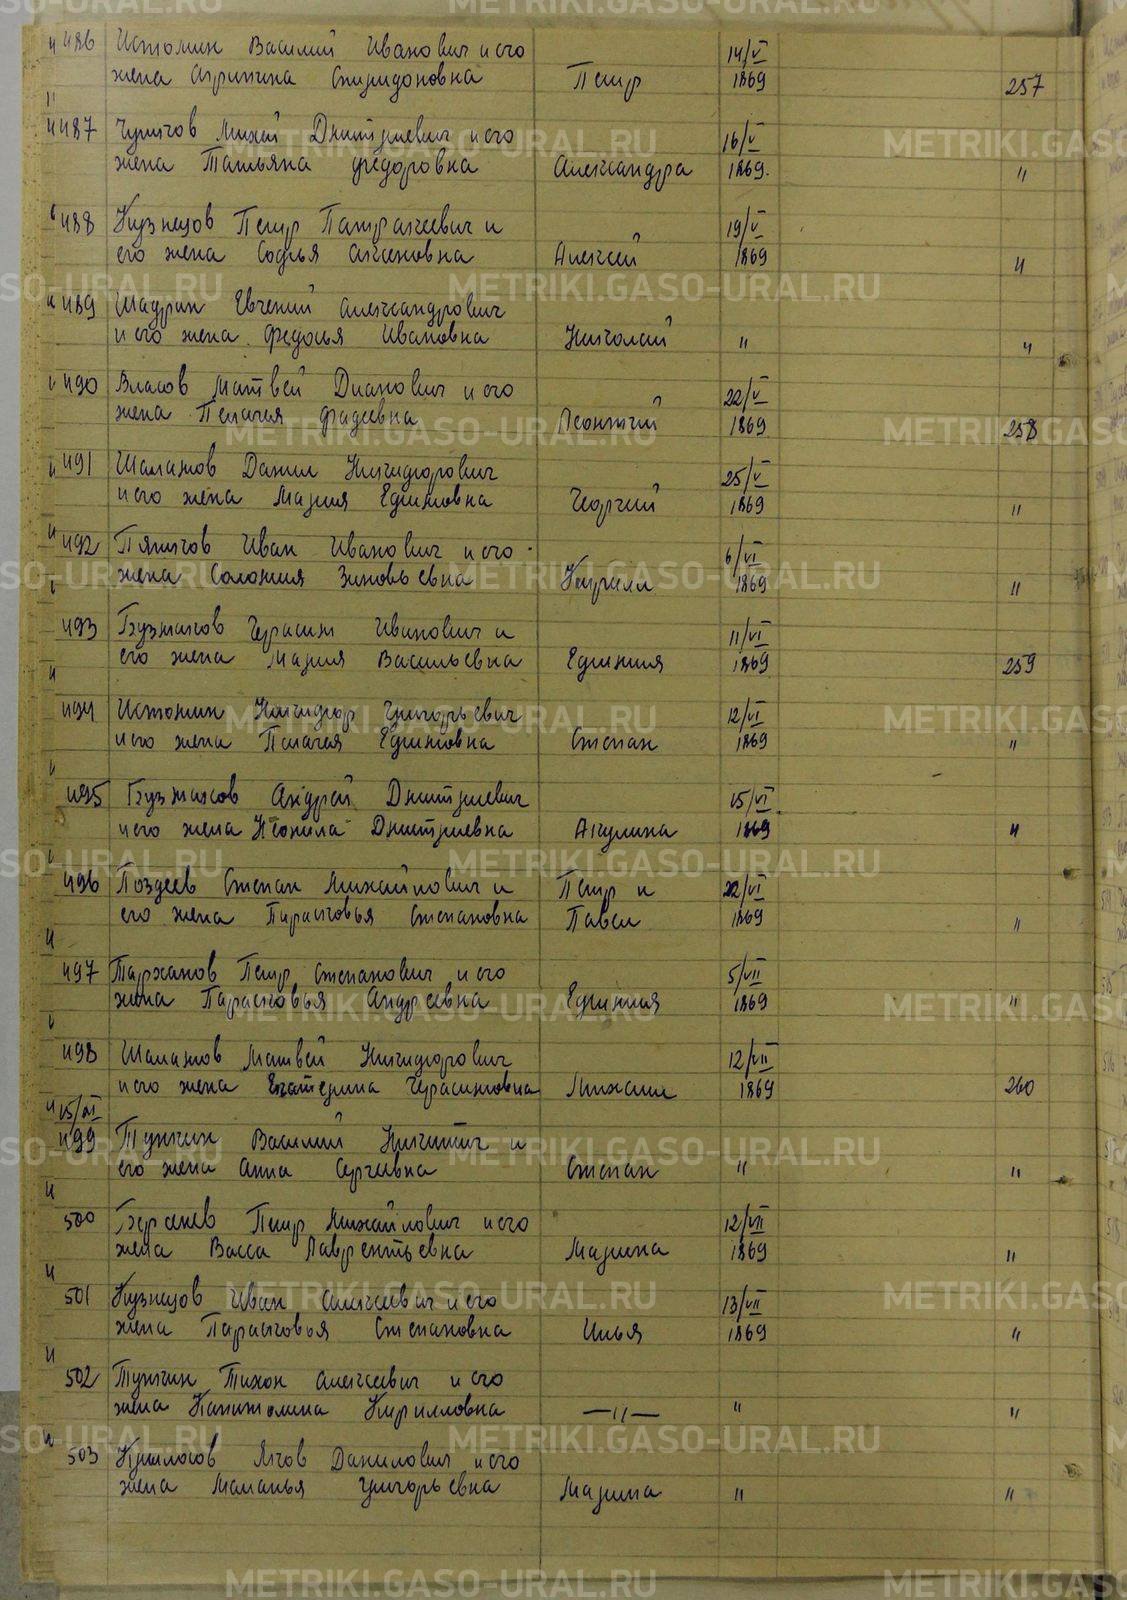 486 Истомин Василий Иванович и его
жена Агрипина Спиридоновна Петр 14/V 1869 257
487 Михай Дмитриевич и его
жена Татьяна Федоровна Александра 16/V 1869. "
488 Кузнецов Петр Патракеевич и
его жена Софья Аксеновна Алексей 19/V 1869 "
489 Шадрин Евгений Александрович
и его жена Федосья Ивановна Николай " "
490 Власов Матвей Дианович и его
жена Пелагея Фадеевна Леонтий 22/V 1869 258
491 Шаламов Данил Никифорович
и его жена Мария Ефимовна Георгий 25/V 1869 "
492 Пятков Иван Иванович и его
жена Соломия Зиновьевна Кирилл 6/VI 1869 "
493 Бузмаков Герасим Иванович и
его жена Мария Васильевна Ефимия 11/VI 1869 259
494 Истомин Никифор Григорьевич
и его жена Пелагея Ефимовна Степан 12/VI 1869 "
495 Бузмаков Андрей Дмитриевич
и его жена Неонила Дмитриевна Акулина 15/VI 1869 "
496 Поздеев Степан Михайлович и Петр и
его жена Парасковья Степановна Павел 22/VI 1869 "
497 Тарханов Петр Степанович и его
жена Парасковья Андреевна Ефимия 5/VII 1869 "
498 Шаламов Матвей Никифорович
и его жена Екатерина Герасимовна Михаил 12/VII 1869 260
15/XI
499 Тункин Василий Никитич и
его жена Анна Сергеевна Степан " "
500 Берсенев Петр Михайлович и его
жена Васса Лаврентьевна Марина 12/VII 1869 "
501 Кузнецов Иван Алексеевич и его
жена Парасковья Степановна Илья 13/VII 1869 "
502 Тункин Тихон Алексеевич и его
жена Капитолина Кирилловна —"— " "
503 Яков Данилович и его
жена Маланья Григорьевна Марина " "
METRIKI.GASO-URAL.RU